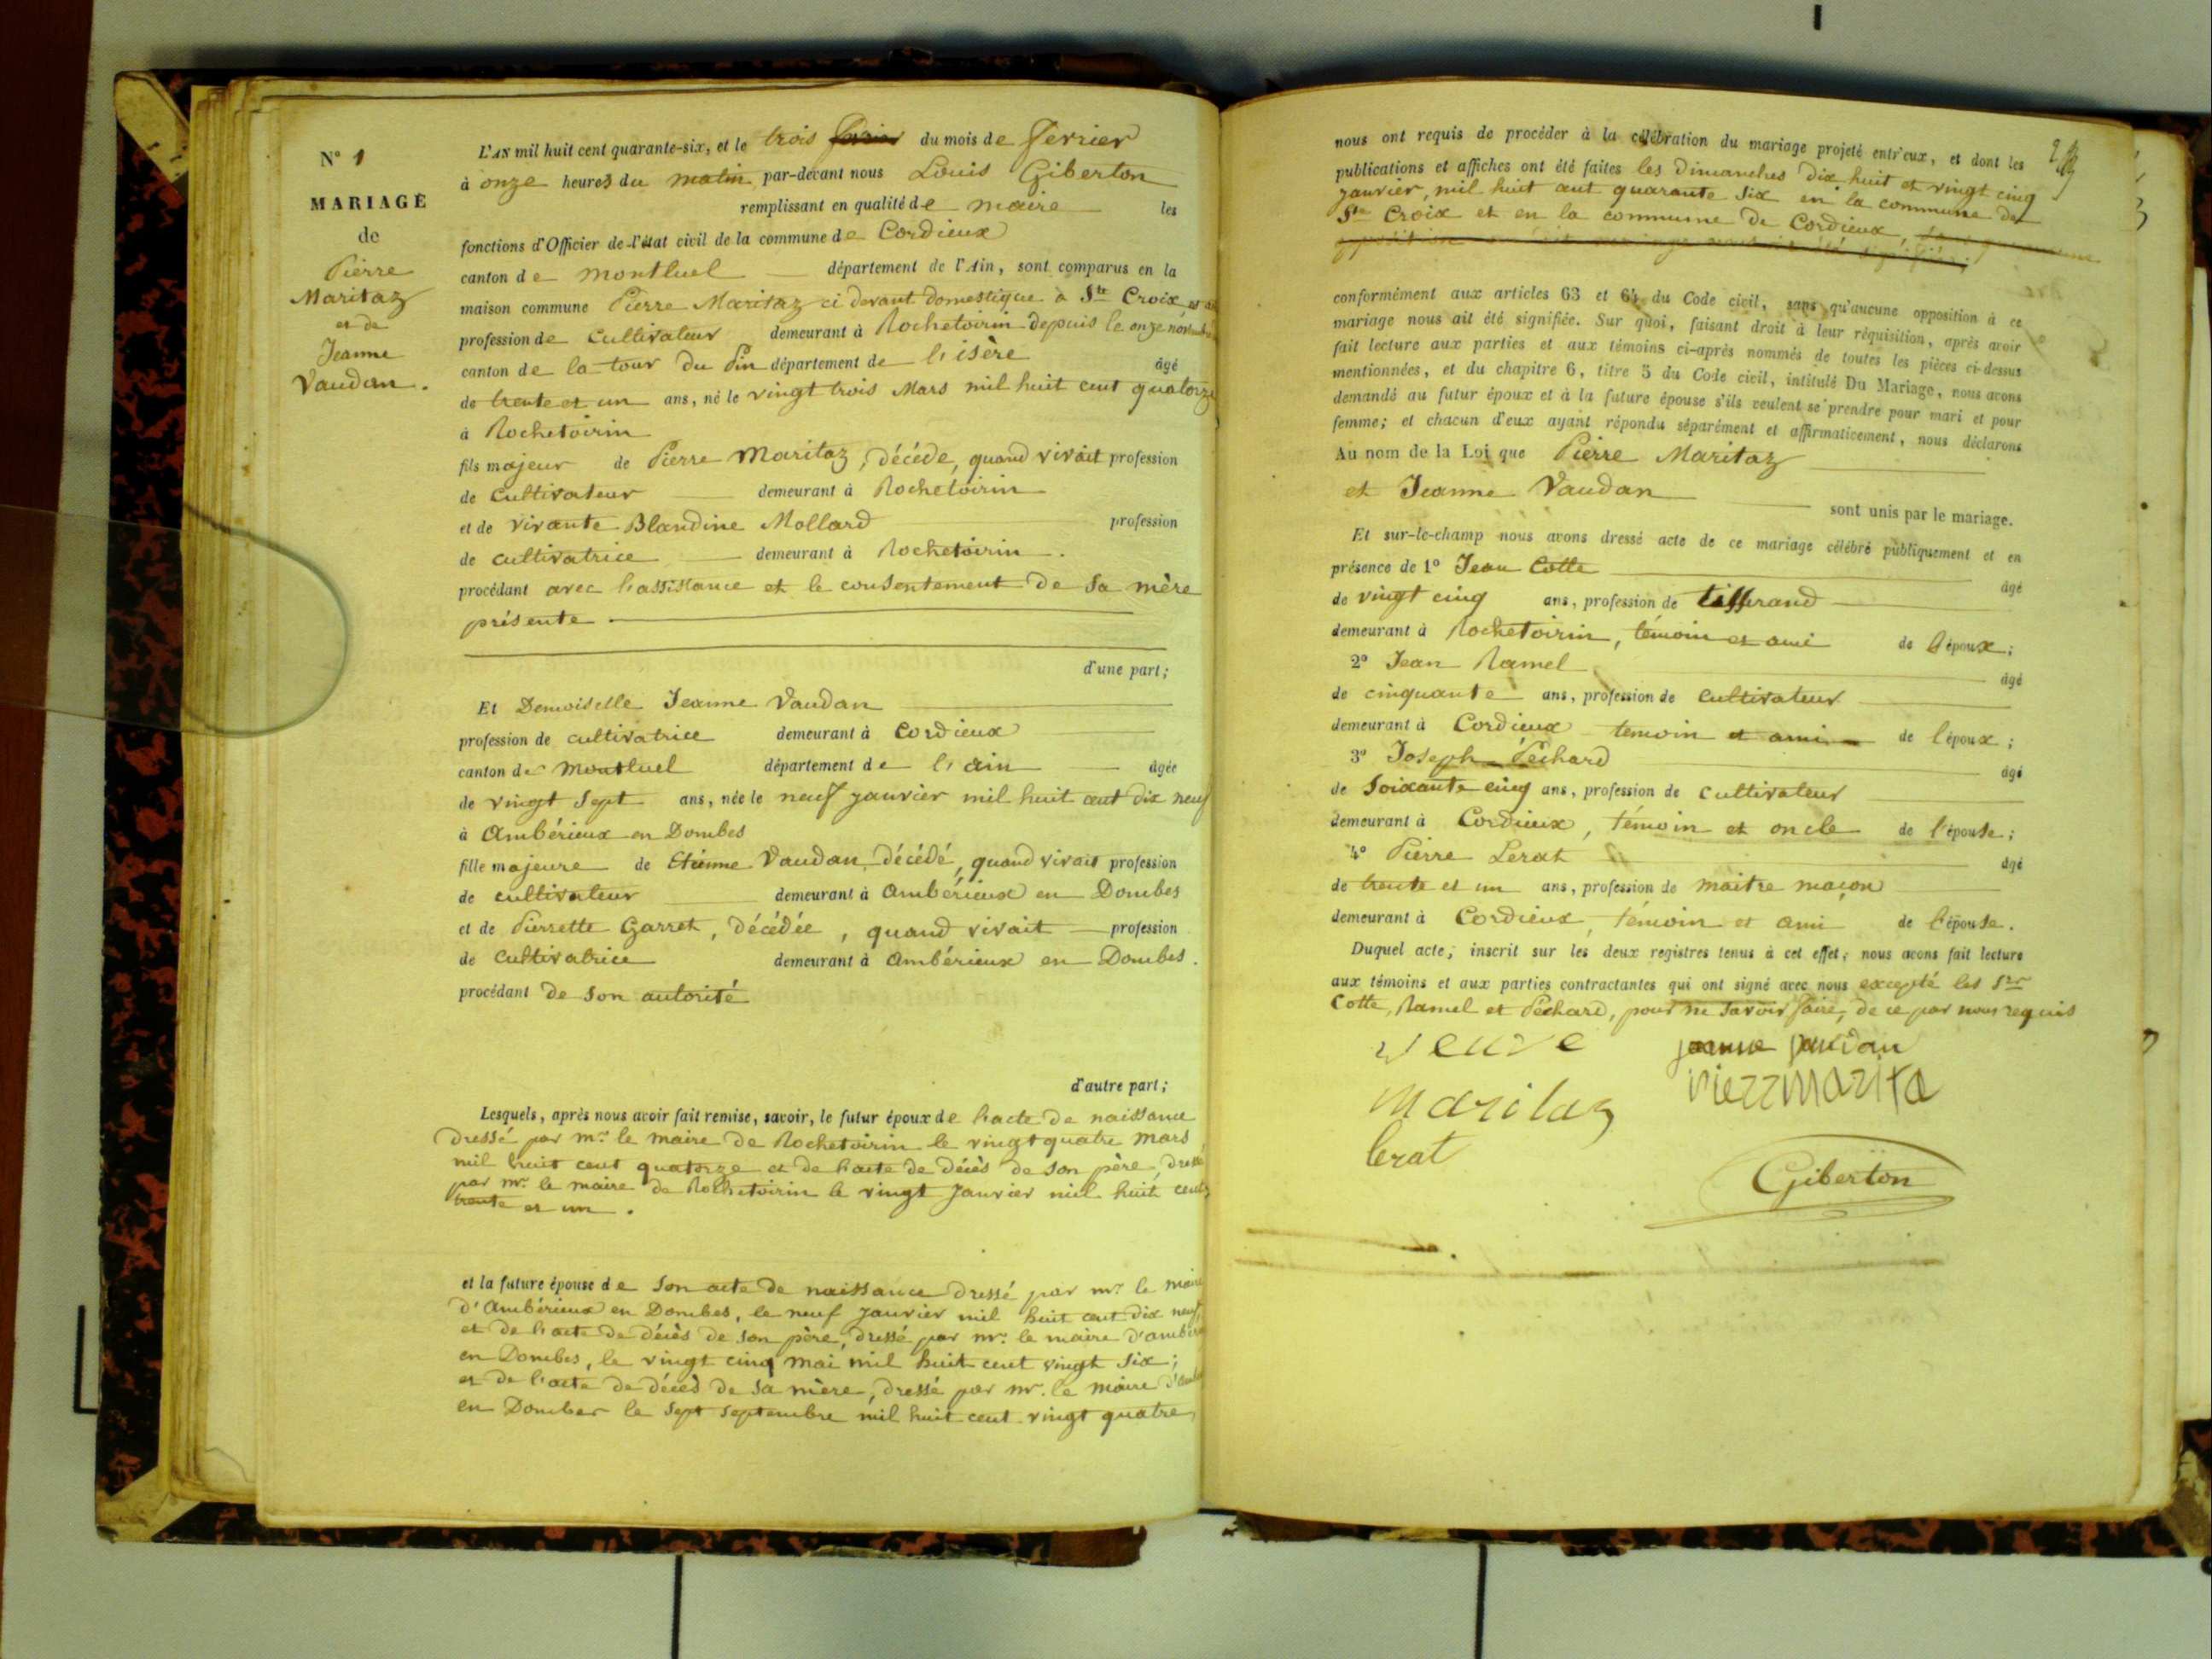 N° 1
MARIAGE
de
Pierre
Maritaz
et de
Jeanne
Vaudan.
L'AN mil huit cent quarante-six, et le trois fevrier du mois de fevrier
à onze heures du matin par-devant nous Louis Giberton
remplissant en qualité de maire les
fonctions d'Officier de l'état civil de la commune de Cordieux
canton de montluel département de l'Ain, sont comparus en la
maison commune Pierre Maritaz ci devant domestique à Ste Croix et
profession de Cultivateur demeurant à Rochetoirin depuis le onze novembre
canton de la tour du Pin département de l'isère âgé
de trente et un ans, né le vingt trois Mars mil huit cent quatorze
à Rochetoirin
fils majeur de Pierre Maritaz, décéde, quand vivait profession
de Cultivateur demeurant à Rochetoirin
et de vivante Blandine Mollard profession
de cultivatrice demeurant à Rochetoirin.
procédant avec l'assistance et le consentement de sa mère
présente.
d'une part;
Et Demoiselle Jeanne Vaudan
profession de cultivatrice demeurant à Cordieux
canton de Montluel département de l'ain âgée
de vingt sept ans, née le neuf janvier mil huit cent dix neuf
à Ambérieux en Dombes
fille majeure de Etienne Vaudan, décédé, quand vivait profession
de cultivateur demeurant à Ambérieux en Dombes
et de Pierrette Garret, décédée, quand vivait profession
de Cultivatrice demeurant à Ambérieux en Dombes.
procédant de son autorité
d'autre part;
Lesquels, après nous avoir fait remise, savoir, le futur époux de l'acte de naissance
dressé par mr. le maire de Rochetoirin le vingt quatre mars
mil huit cent quatorze et de l'acte de décès de son père, dressé
par mr. le maire de Rochetoirin le vingt janvier mil huit cent
trente et un.
et la future épouse de son acte de naissance dressé par mr. le maire
d'Ambérieux en Dombes, le neuf janvier mil huit cent dix neuf,
et de l'acte de décès de son père, dressé par mr. le maire d'ambérieux
en Dombes, le vingt cinq mai mil huit cent vingt six;
et de l'acte de décès de sa mère, dressé par mr. le maire
en Dombes le sept septembre mil huit cent vingt quatre,
nous ont requis de procéder à la célébration du mariage projeté entr'eux, et dont les
publications et affiches ont été faites les dimanches dix huit et vingt cinq
janvier, mil huit cent quarante six en la commune de
Ste Croix et en la commune de Cordieux,
conformément aux articles 63 et 64 du Code civil, sans qu'aucune opposition à ce
mariage nous ait été signifiée. Sur quoi, faisant droit à leur réquisition, après avoir
fait lecture aux parties et aux témoins ci-après nommés de toutes les pièces ci-dessus
mentionnées, et du chapitre 6, titre 5 du Code civil, intitulé Du Mariage, nous avons
demandé au futur époux et à la future épouse s'ils veulent se prendre pour mari et pour
femme; et chacun d'eux ayant répondu séparément et affirmativement, nous déclarons
Au nom de la Loi que Pierre Maritaz
et Jeanne Vaudan
sont unis par le mariage.
Et sur-le-champ nous avons dressé acte de ce mariage célébré publiquement et en
présence de 1° Jean Cotte
âgé
de vingt cinq ans, profession de tisserand
demeurant à Rochetoirin, témoin et ami de l'époux;
2° Jean Ramel
âgé
de cinquante ans, profession de cultivateur
demeurant à Cordieux temoin et ami de l'époux;
3° Joseph Péchard
âgé
de soixante cinq ans, profession de cultivateur
demeurant à Cordieux, témoin et oncle de l'épouse;
4° Pierre Lerat
âgé
de trente et un ans, profession de maitre maçon
demeurant à Cordieux, témoin et ami de l'épouse.
Duquel acte, inscrit sur les deux registres tenus à cet effet, nous avons fait lecture
aux témoins et aux parties contractantes qui ont signé avec nous excepté les Srs
Cotte, Ramel et Péchard, pour ne savoir faire, de ce par nous requis
veuve
jeanne vaudan
marilaz
pierrmarita
lerat
Giberton